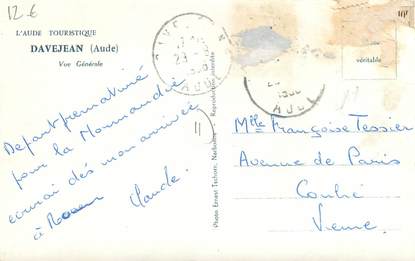 12 €
L'AUDE TOURISTIQUE
DAVEJEAN (Aude)
Vue Générale
Départ prématuré
pour la Normandie
écrirai dès mon arrivée
à
Claude.
Photo Ernest Tschorn, Narbonne
Reproduction interdite
véritable
AUDE
Mlle Françoise Tessier
Avenue de Paris
Couhé
Vienne